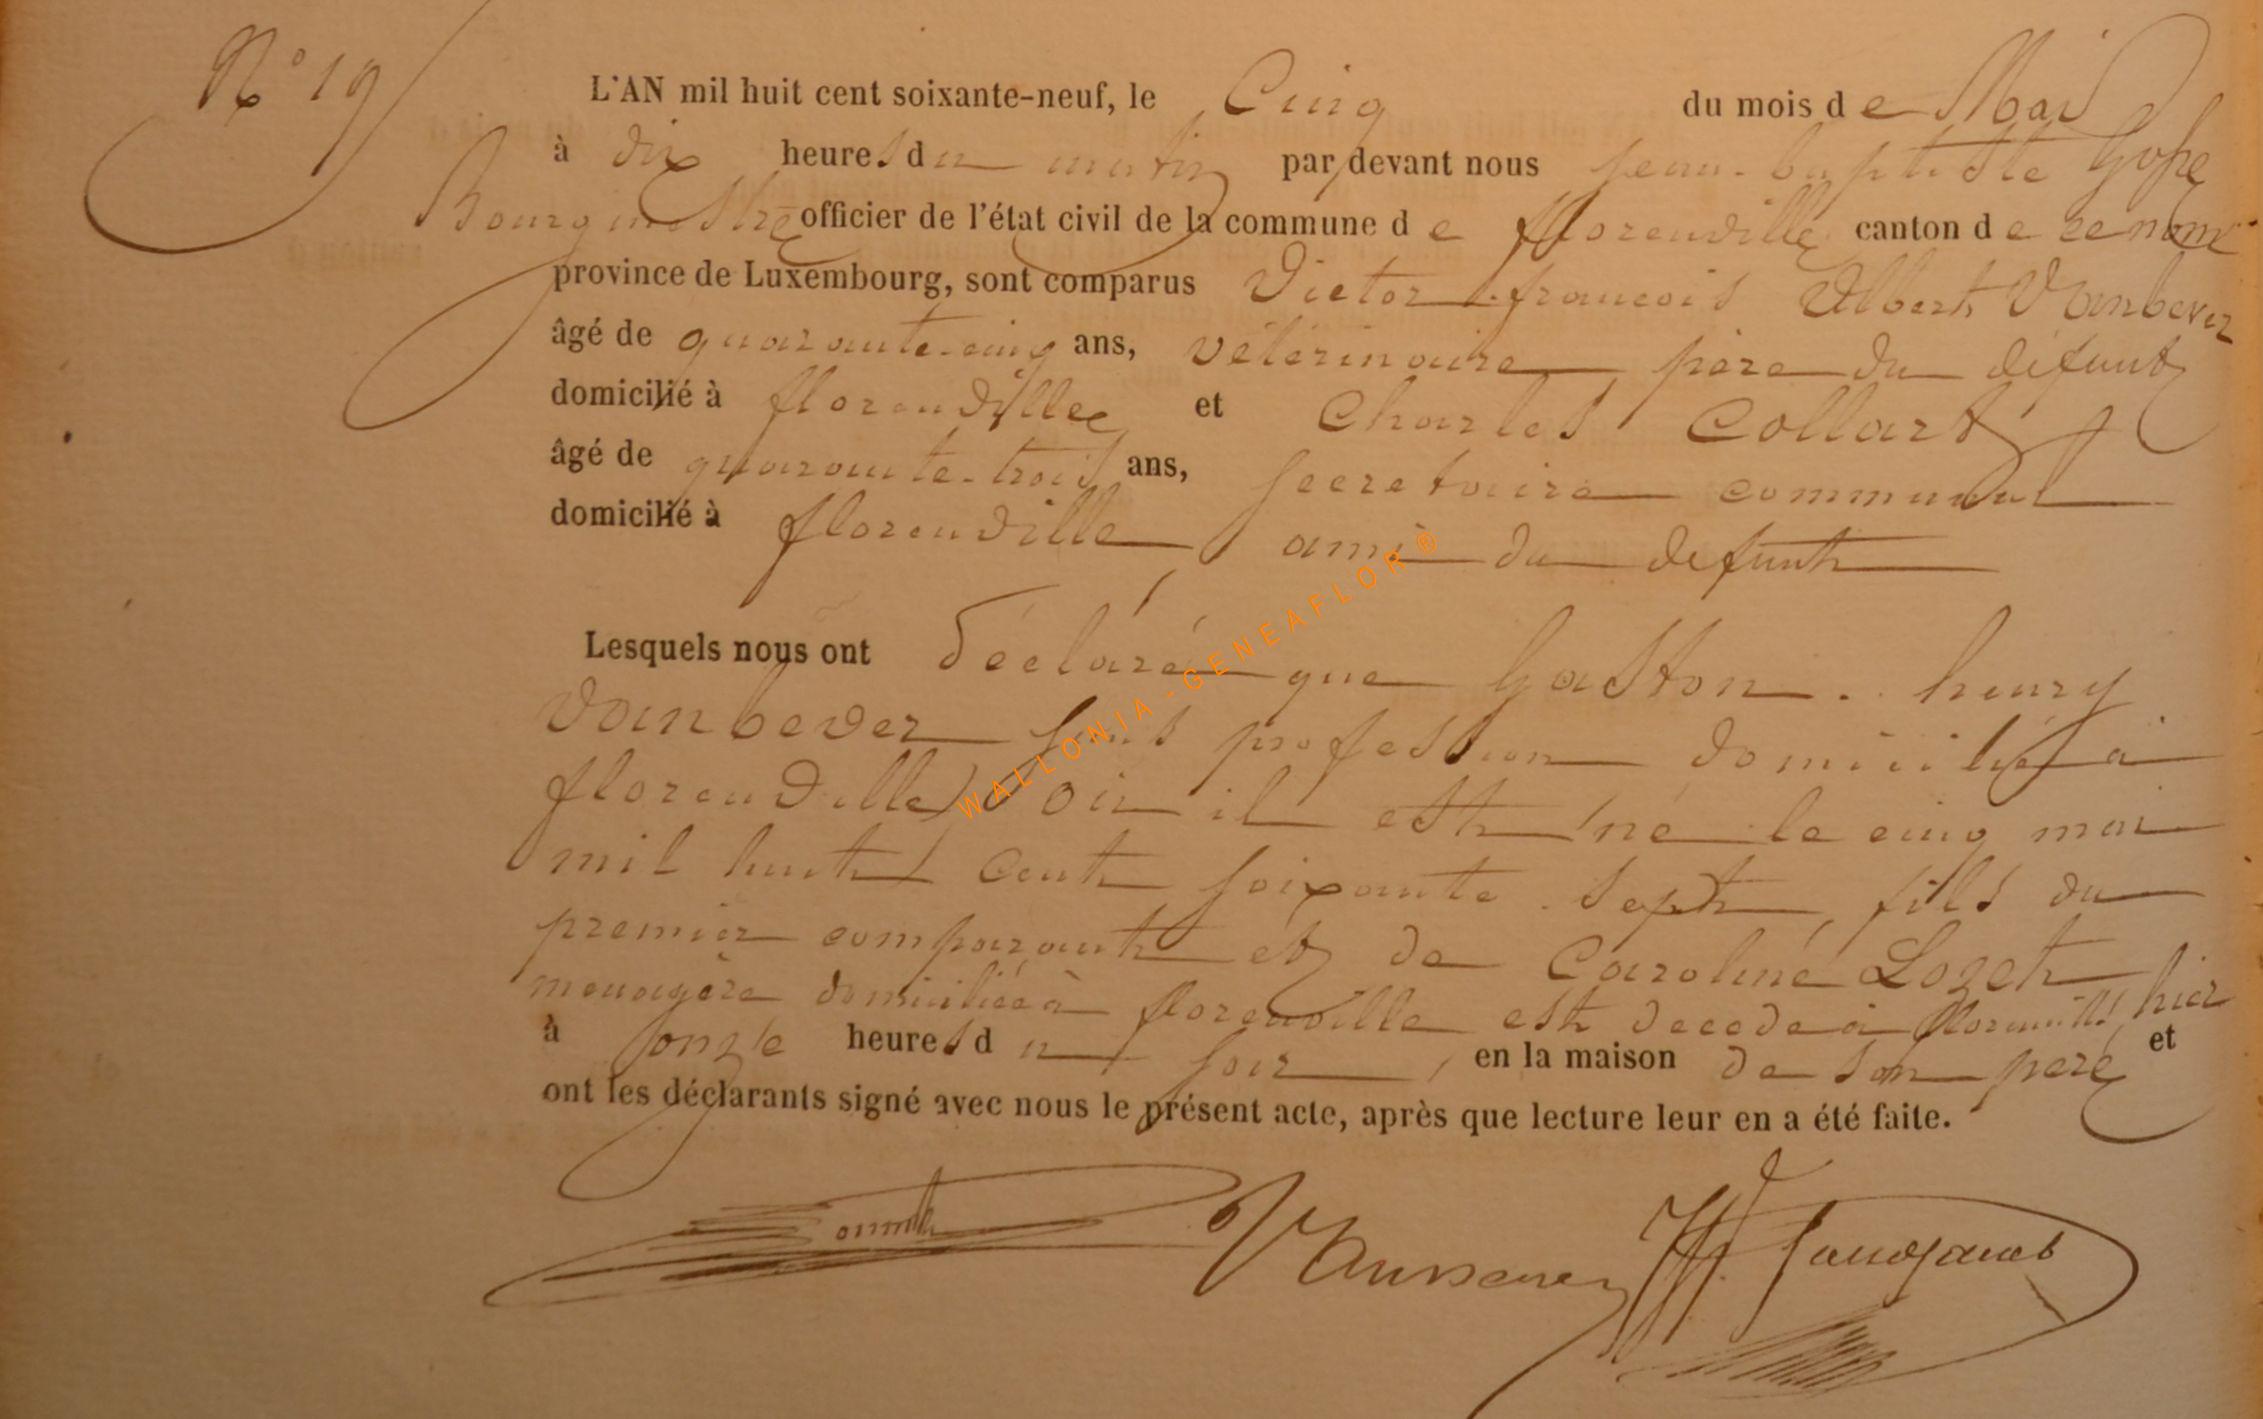 N° 19
L'AN mil huit cent soixante-neuf, le Cinq du mois de Mai
à dix heures du matin par devant nous jean-baptiste
Bourgmestre officier de l'état civil de la commune de florenville canton de ce nom
province de Luxembourg, sont comparus Victor-francois Albert Vanbever
âgé de quarante-cinq ans, vétérinaire père du défunt
domicilié à florenville et Charles Collart
âgé de quarante-trois ans, secretaire communal
domicilié à florenville, ami du defunt
Lesquels nous ont déclaré que Gaston. henry
Vanbever sans profession domicilié à
florenville, où il est né le cinq mai
mil huit cent soixante-sept, fils du
premier comparant et de Caroline Lozet
menagère domiciliée à florenville est decedé à florenville hier
à onze heures du soir, en la maison de son père et
ont les déclarants signé avec nous le présent acte, après que lecture leur en a été faite.
Vanbever
WALLONIA-GENEAFLOR ®